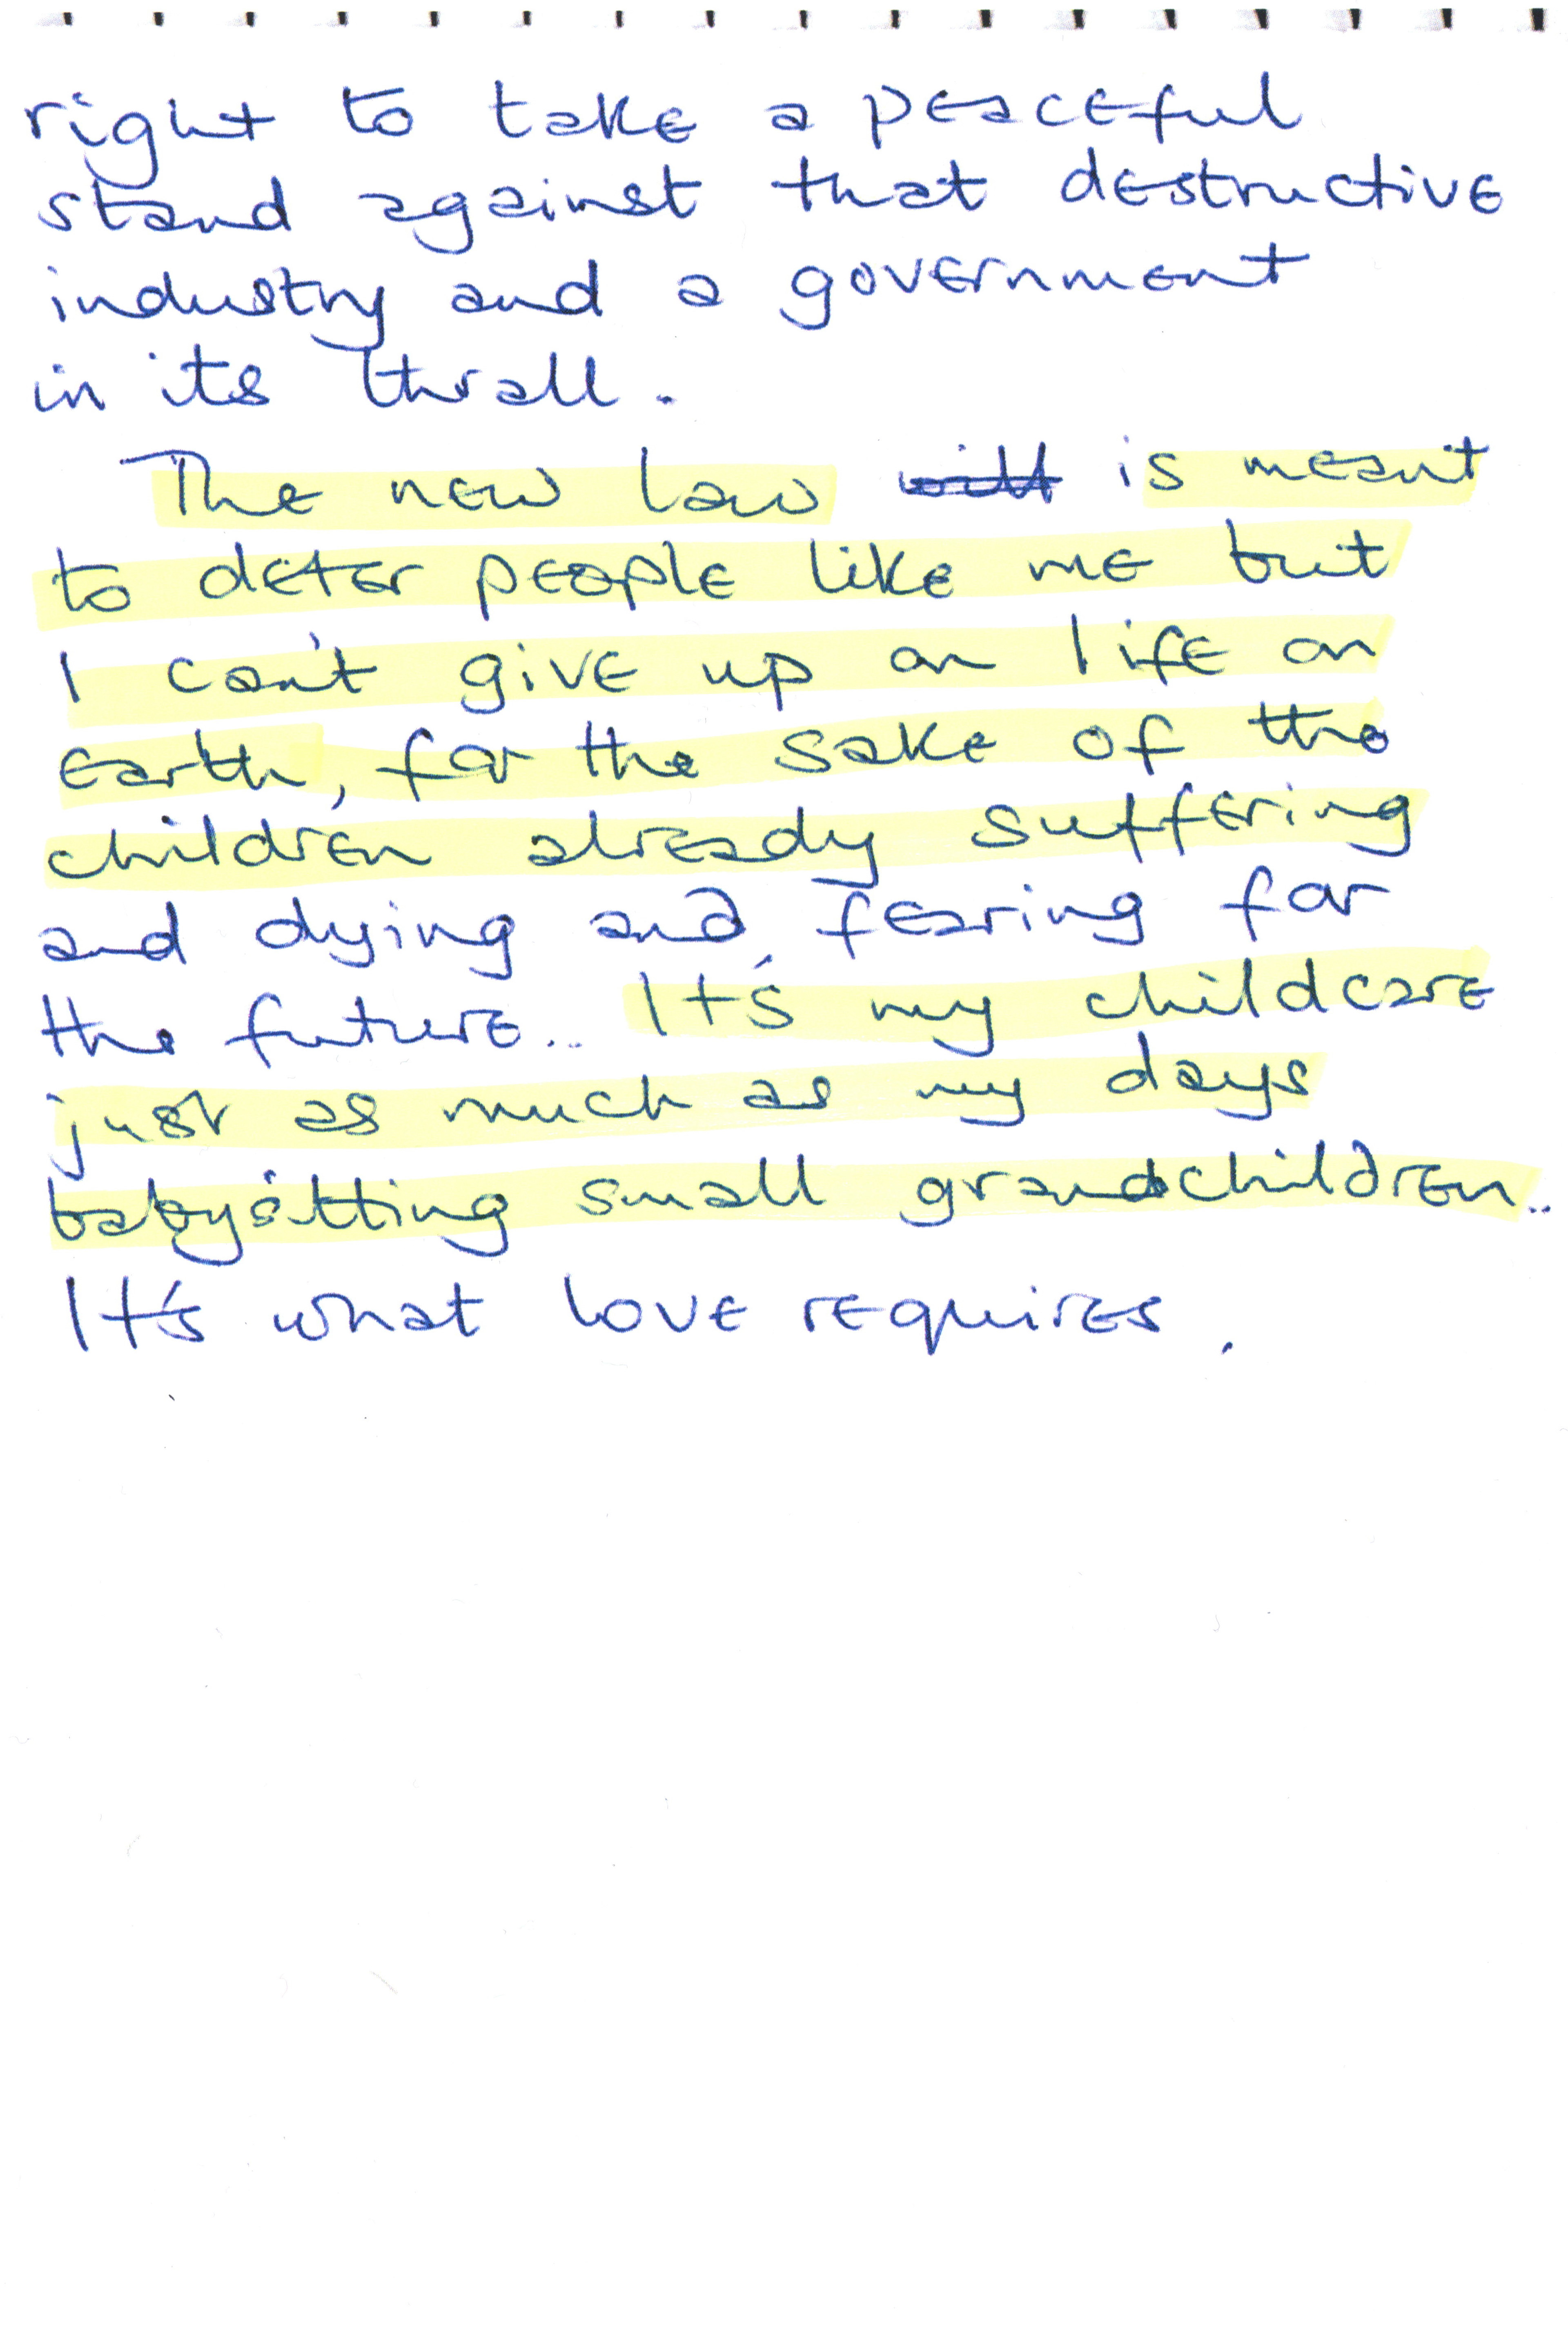 right to take a peaceful
stand against that destructive
industry and a government
in its thrall.
The new law will is meant
to deter people like me but
I can't give up on life on
earth, for the sake of the
children already suffering
and dying and fearing for
the future.. It's my childcare
just as much as my days
babysitting small grandchildren..
It's what love requires.